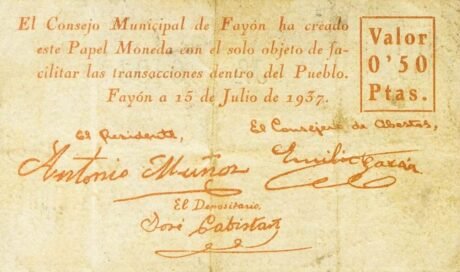 El Consejo Municipal de Fayón ha creado
este Papel Moneda con el solo objeto de fa-
cilitar las transacciones dentro del Pueblo.
Fayón a 15 de Julio de 1937.
Valor
0'50
Ptas.
El Presidente,
El Consejero de Abastos,
Antonio Muñoz
Emilio
El Depositario,
José Cabistañ